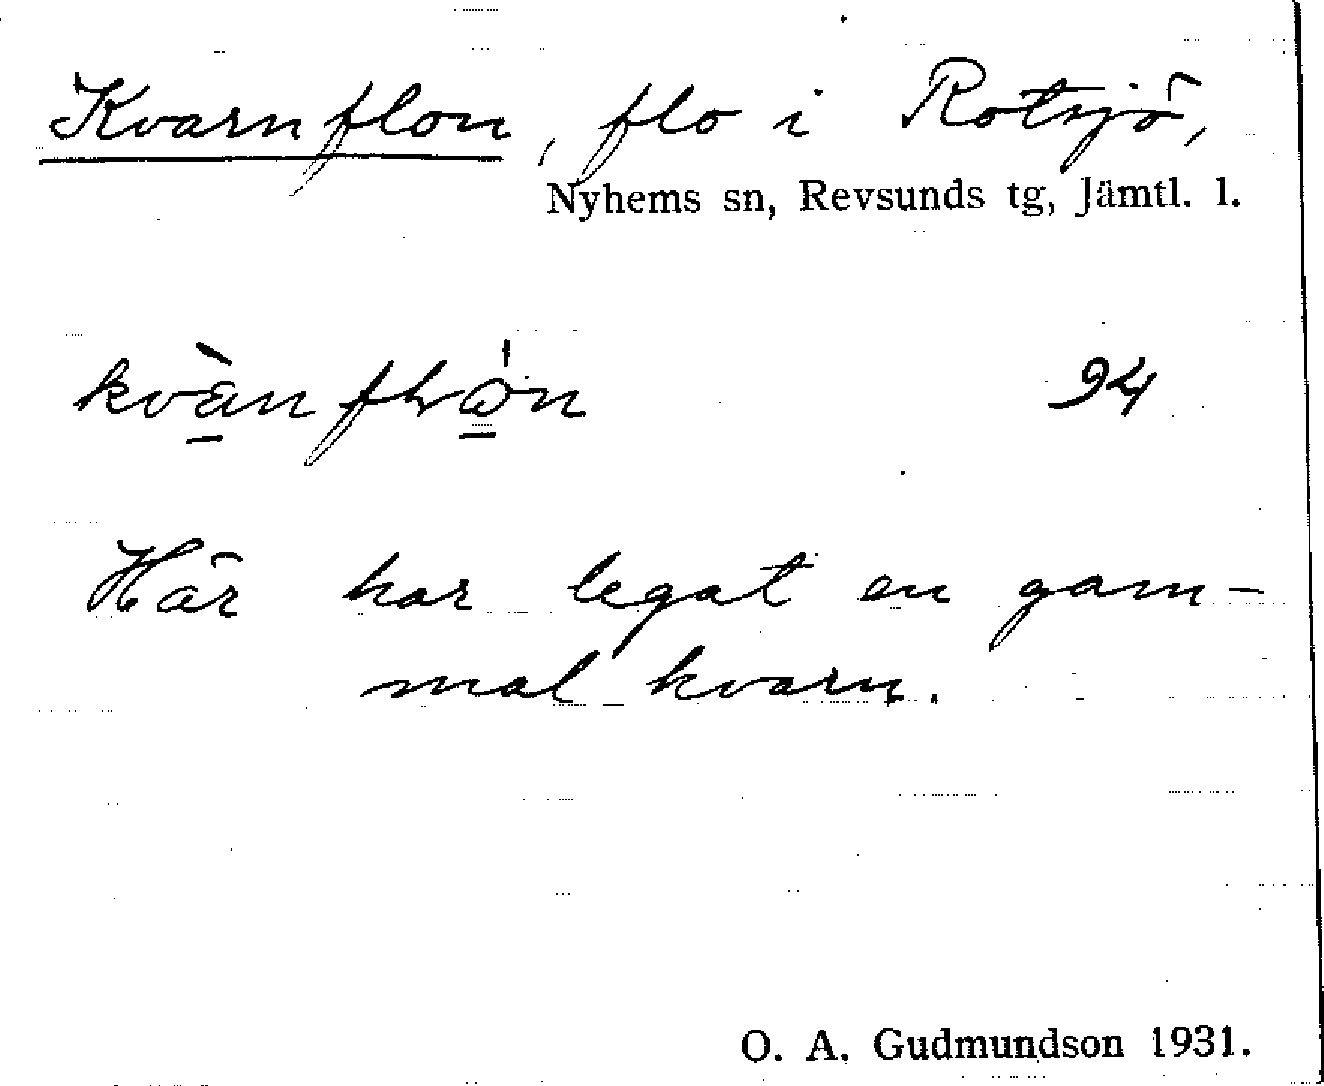 Kvarnflon, flo i Rotsjö,
Nyhems sn, Revsunds tg, Jämtl. l.
94
Här har legat en gam-
mal kvarn.
O. A. Gudmundson 1931.